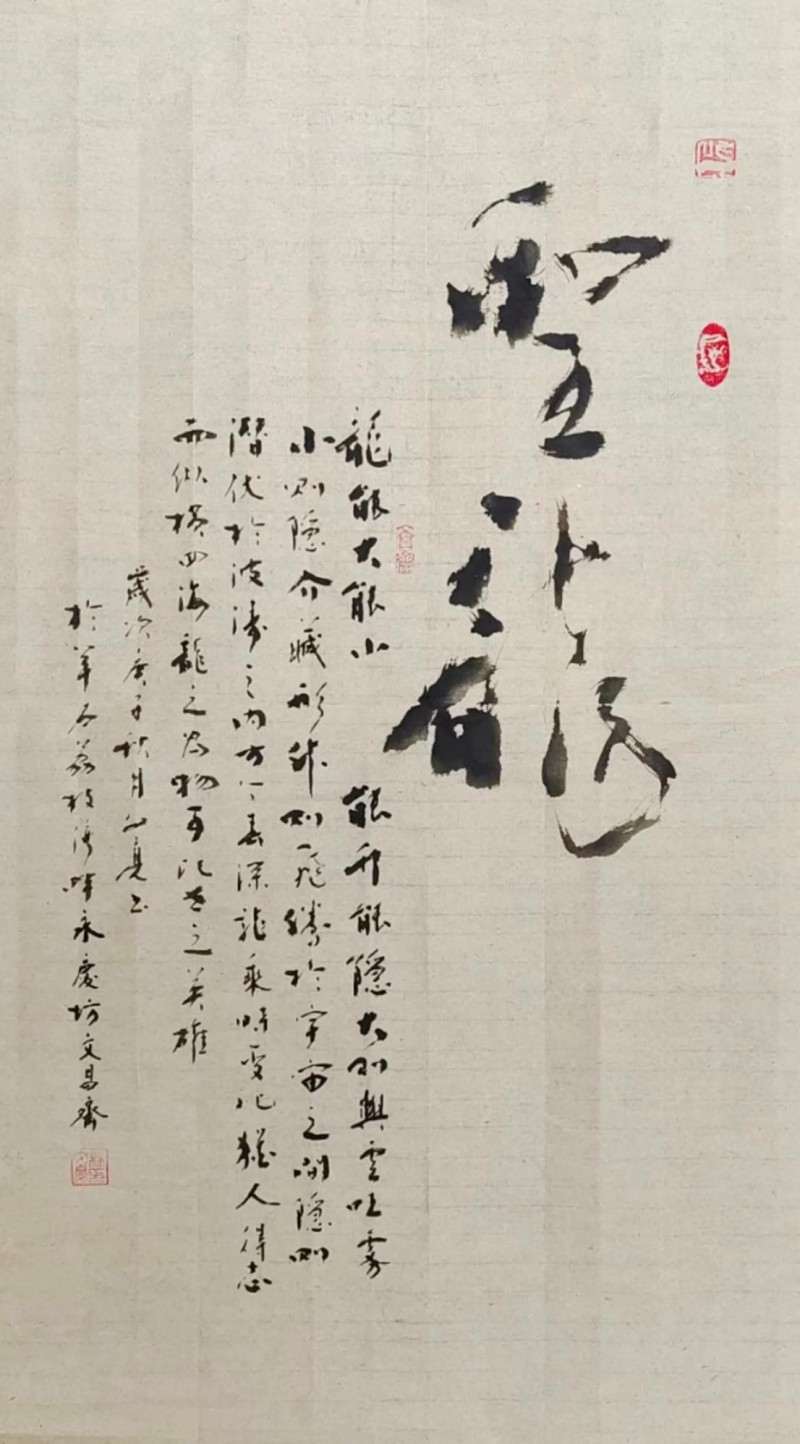 聖
龍能大能小能升能隱大則興雲吐霧
小則隱介藏形升則飛騰於宇宙之間隱則
潛伏於波濤之內方今春深龍乘時變化猶人得志
而縱橫四海龍之為物可比世之英雄
歲次庚子秋月
於羊石荔枝灣畔永慶坊文昌齋